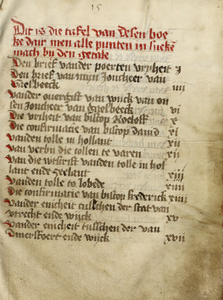 15
Dit is die tafel van desen boe
ke dair men alle punten in sueke
mach bij den getale
Den brief vander poerten vrijheit j
Den brief van mijn Joncheer van
Gaesbeeck iiij
vander overgift van wijck van on
sen Joncheer van Gaesbeeck vi
Die vriheit van biscop Roeloff x
Die confirmacie van biscop david xi
vanden tolle in hollant xi
van verbu die tollen te varen xij
van die witscrift vanden tolle in hol
lant ende zeelant xiij
vanden tolle te lobede xiiij
Die confirmacie van biscop frederick xiiij
vander enicheit tusschen der stat van
vtrecht ende wijck xv
vander enicheit tusschen der van
Amersfoert ende wijck xvij